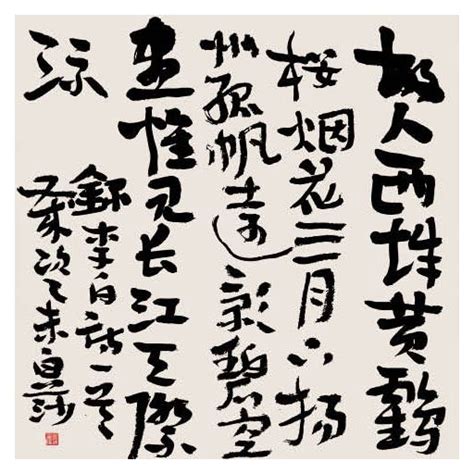 故人西辞黄鹤
楼烟花三月下扬
州孤帆遠影碧空
尽惟见长江天際
流
録李白诗一首
乙未